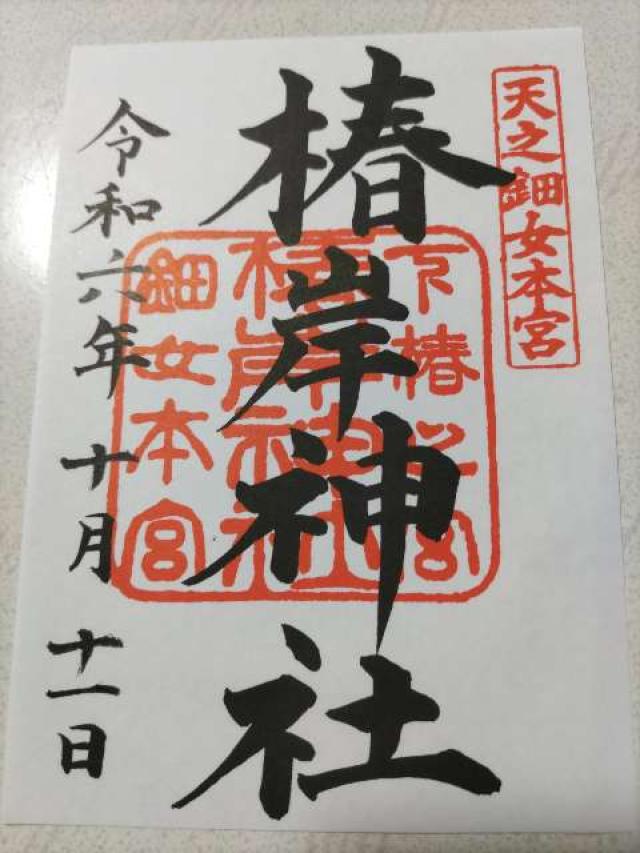 天之鈿女本宮
椿岸神社
下椿之宮
椿岸神社
鈿女本宮
令和六年十月十一日